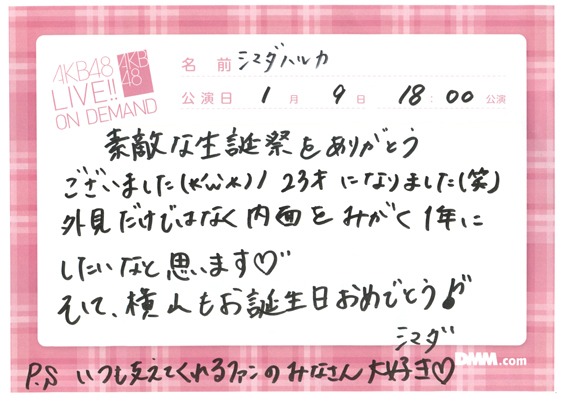 AKB48
LIVE!!
ON DEMAND
AKB
48
名 前 シマダハルカ
公演日 1 月 9 日 18:00 公演
素敵な生誕祭をありがとう
ございました(*'ω'*)ノ 23才になりました(笑)
外見だけではなく内面をみがく1年に
したいなと思います♡
そして、横山もお誕生日おめでとう♪
シマダ
DMM.com
P.S いつも支えてくれるファンのみなさん大好き♡